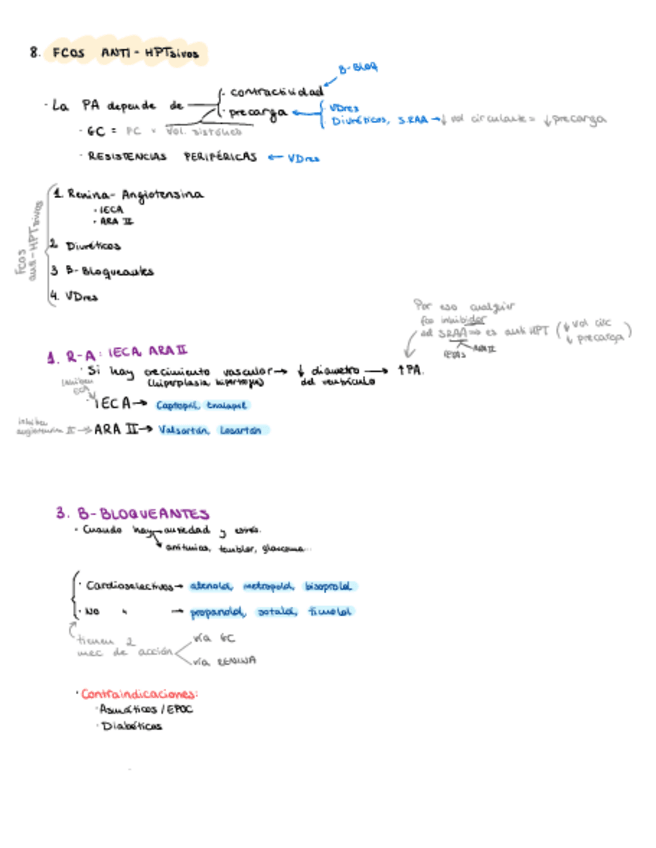 8. FCOS ANTI-HPTsivos
B-Bloq
· La PA depende de
· contractividad
· precarga
VDres
Diuréticos, SRAA → ↓ vol circulante = ↓ precarga
· GC = FC × Vol. sistólico
· RESISTENCIAS PERIFÉRICAS ← VDres
Fcos anti-HPTsivos
1. Renina-Angiotensina
· IECA
· ARA II
2 Diuréticos
3 B-Bloqueantes
4. VDres
Por eso cualquier
fco inhibidor
del SRAA → es anti HPT (↓ Vol circ
↓ precarga)
IECAS ARA II
1. R-A: IECA ARA II
· Si hay crecimiento vascular → ↓ diametro → ↑ PA.
(hiperplasia hipertrofia) del ventrículo
inhiben ECA
· IECA → Captopril, Enalapril
inhiben angiotensina II → ARA II → Valsartán, Losartán
3. B-BLOQUEANTES
· Cuando hay → ansiedad y estrés.
arritmias, temblor, glaucoma...
· Cardioselectivos → atenolol, metropolol, bisoprolol
· No " → propanolol, sotalol, timolol
tienen 2
mec de acción
vía GC
vía RENINA
· Contraindicaciones:
· Asmáticos / EPOC
· Diabéticos